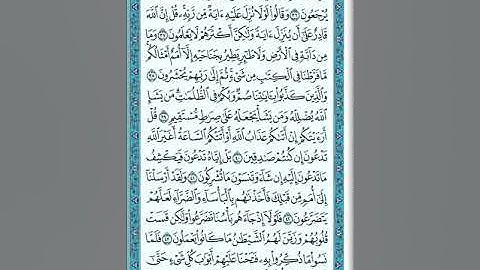 يُرْجَعُونَ ٣٦ وَقَالُوا۟ لَوْلَا نُزِّلَ عَلَيْهِ ءَايَةٌ مِّن رَّبِّهِۦ قُلْ إِنَّ ٱللَّهَ
قَادِرٌ عَلَىٰٓ أَن يُنَزِّلَ ءَايَةً وَلَٰكِنَّ أَكْثَرَهُمْ لَا يَعْلَمُونَ ٣٧ وَمَا
مِن دَآبَّةٍ فِى ٱلْأَرْضِ وَلَا طَٰٓئِرٍ يَطِيرُ بِجَنَاحَيْهِ إِلَّآ أُمَمٌ أَمْثَالُكُم
مَّا فَرَّطْنَا فِى ٱلْكِتَٰبِ مِن شَىْءٍ ثُمَّ إِلَىٰ رَبِّهِمْ يُحْشَرُونَ ٣٨
وَٱلَّذِينَ كَذَّبُوا۟ بِـَٔايَٰتِنَا صُمٌّ وَبُكْمٌ فِى ٱلظُّلُمَٰتِ مَن يَشَإِ
ٱللَّهُ يُضْلِلْهُ وَمَن يَشَأْ يَجْعَلْهُ عَلَىٰ صِرَٰطٍ مُّسْتَقِيمٍ ٣٩ قُلْ
أَرَءَيْتَكُمْ إِنْ أَتَىٰكُمْ عَذَابُ ٱللَّهِ أَوْ أَتَتْكُمُ ٱلسَّاعَةُ أَغَيْرَ ٱللَّهِ
تَدْعُونَ إِن كُنتُمْ صَٰدِقِينَ ٤٠ بَلْ إِيَّاهُ تَدْعُونَ فَيَكْشِفُ
مَا تَدْعُونَ إِلَيْهِ إِن شَآءَ وَتَنسَوْنَ مَا تُشْرِكُونَ ٤١ وَلَقَدْ أَرْسَلْنَآ
إِلَىٰٓ أُمَمٍ مِّن قَبْلِكَ فَأَخَذْنَٰهُم بِٱلْبَأْسَآءِ وَٱلضَّرَّآءِ لَعَلَّهُمْ
يَتَضَرَّعُونَ ٤٢ فَلَوْلَآ إِذْ جَآءَهُم بَأْسُنَا تَضَرَّعُوا۟ وَلَٰكِن قَسَتْ
قُلُوبُهُمْ وَزَيَّنَ لَهُمُ ٱلشَّيْطَٰنُ مَا كَانُوا۟ يَعْمَلُونَ ٤٣ فَلَمَّا
نَسُوا۟ مَا ذُكِّرُوا۟ بِهِۦ فَتَحْنَا عَلَيْهِمْ أَبْوَٰبَ كُلِّ شَىْءٍ حَتَّىٰٓ